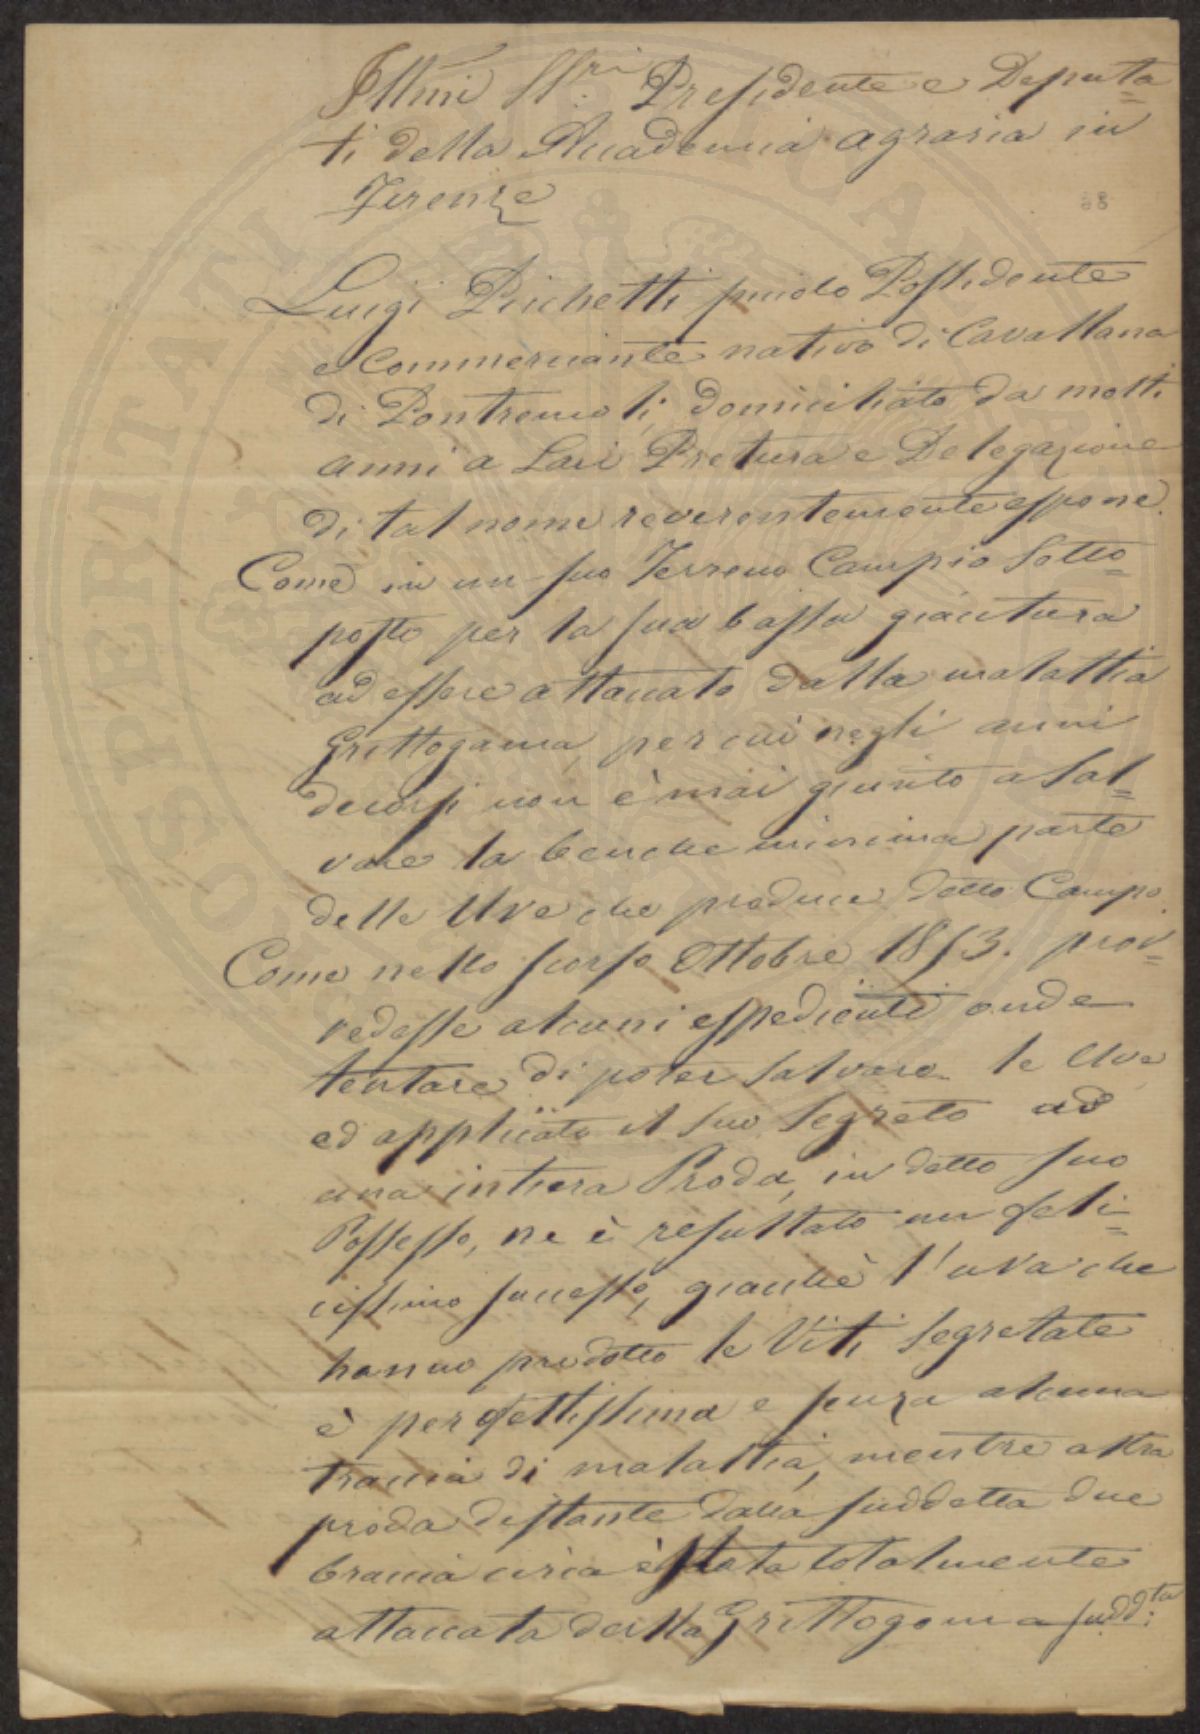 Illmi SSri: Presidente e Deputa=
ti della Accademia agraria in
Firenze
68
Luigi Pichetti piccolo Possidente
e Commerciante nativo di Cavallana
di Pontremoli, domiciliato da molti
anni a Lari Pretura e Delegazione
di tal nome reverentemente espone.
Come in un suo Terreno Campio Sotto=
posto per la sua bassa giacitura
ad essere attaccato dalla malattia
Grittogama, per cui negli anni
decorsi non è mai giunto a sal=
vare la benche minima parte
delle Uve che produce detto Campo.
Come nello scorso Ottobre 1853. prov=
vedesse alcuni espedienti onde
tentare di poter salvare le Uve
ed applicato il suo Segreto ad
una intiera Proda, in detto suo
Possesso, ne è resultato un feli=
cissimo successo, giacchè l'uva che
hanno prodotto le Viti Segretate
è perfettissima e senza alcuna
traccia di malattia, mentre altra
proda distante dalla suddetta due
braccia circa è stata totalmente
attaccata dalla Grittogama sudd:ta
SOSPERITATI PUBLICAE